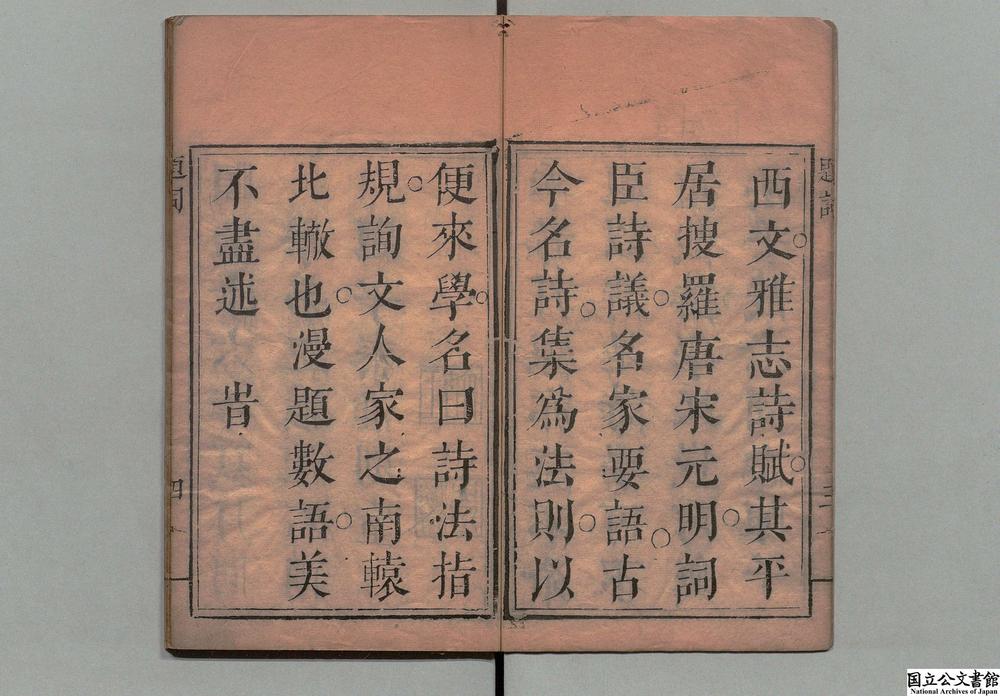 西文雅志詩賦其平
居搜羅唐宋元明詞
臣詩議名家要語古
今名詩集為法則以
便來學名曰詩法指
規詢文人家之南轅
北轍也漫題數語美
不盡述 旹
題詞
四
国立公文書館
National Archives of Japan